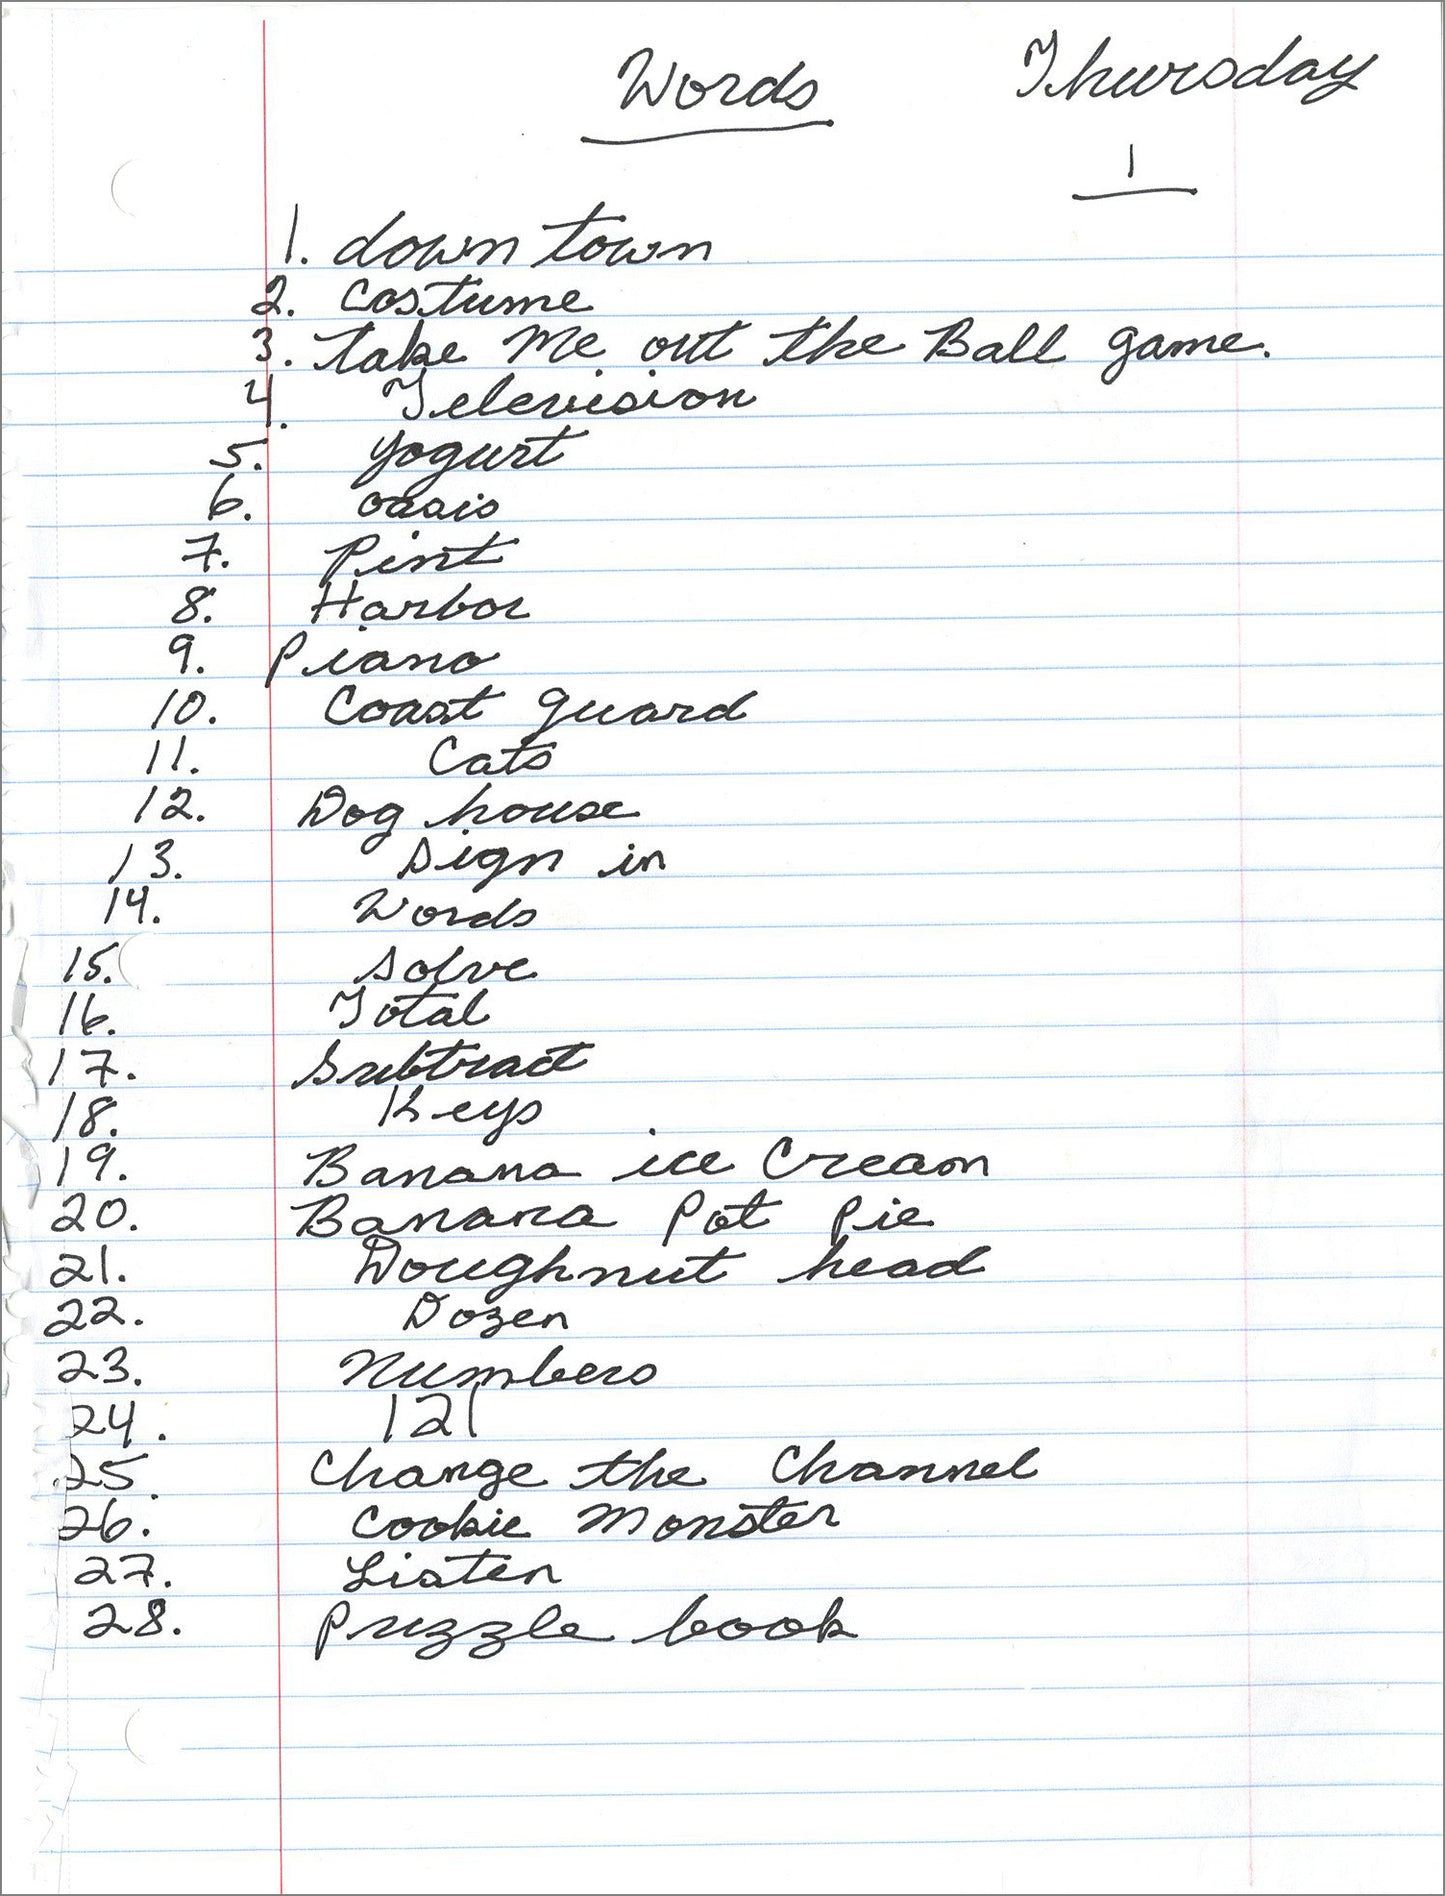 Words
Thursday
1
1. down town
2. costume
3. take Me out the Ball game.
4. Television
5. yogurt
6. oasis
7. Pint
8. Harbor
9. Piano
10. Coast guard
11. Cats
12. Dog house
13. Sign in
14. Words
15. Solve
16. Total
17. Subtract
18. Keys
19. Banana ice Cream
20. Banana Pot Pie
21. Doughnut head
22. Dozen
23. Numbers
24. 121
25. Change the Channel
26. Cookie Monster
27. Listen
28. Puzzle book